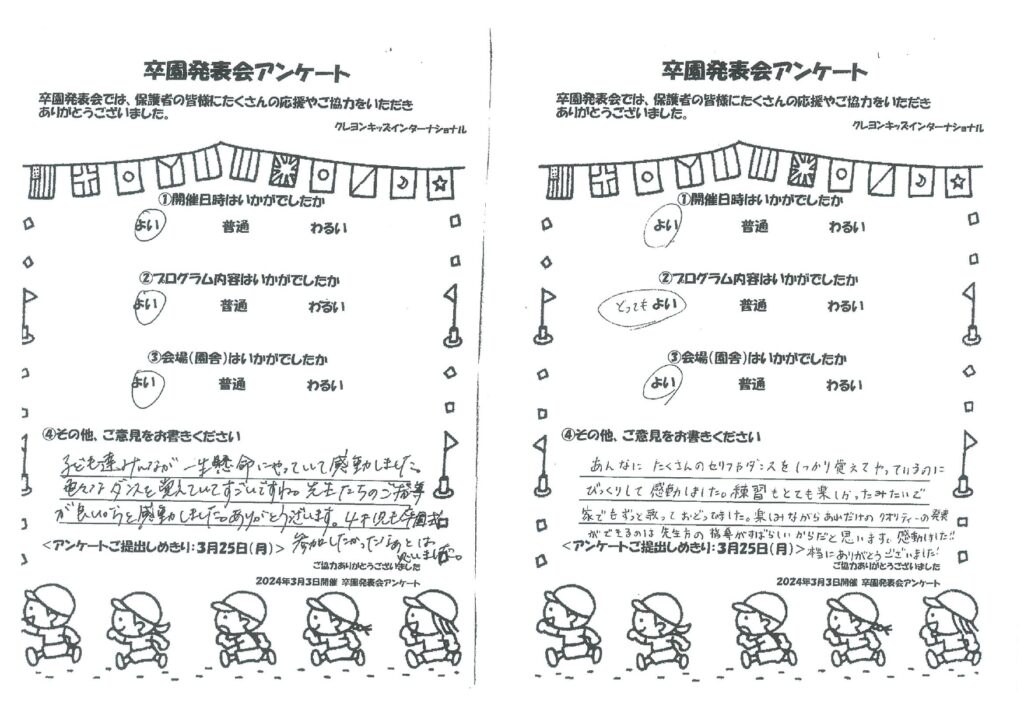 卒園発表会アンケート
卒園発表会では、保護者の皆様にたくさんの応援やご協力をいただき
ありがとうございました。
クレヨンキッズインターナショナル
①開催日時はいかがでしたか
よい 普通 わるい
②プログラム内容はいかがでしたか
よい 普通 わるい
③会場(園舎)はいかがでしたか
よい 普通 わるい
④その他、ご意見をお書きください
子ども達みんなが一生懸命にやっていて感動しました。
色んなダンスを覚えていてすごいですね。先生たちのご指導
が良いからと感動しました。ありがとうございます。4才児も卒園式
参加したかったなあとは
思いました。
<アンケートご提出しめきり:3月25日(月)>
ご協力ありがとうございました
2024年3月3日開催 卒園発表会アンケート
卒園発表会アンケート
卒園発表会では、保護者の皆様にたくさんの応援やご協力をいただき
ありがとうございました。
クレヨンキッズインターナショナル
①開催日時はいかがでしたか
よい 普通 わるい
②プログラム内容はいかがでしたか
とっても よい 普通 わるい
③会場(園舎)はいかがでしたか
よい 普通 わるい
④その他、ご意見をお書きください
あんなに たくさんのセリフやダンスを しっかり覚えてやっているのに
びっくりして 感動しました。練習もとても楽しかったみたいで
家でもずっと歌って おどってました。楽しみながら あれだけの クオリティーの発表
ができるのは 先生方の 指導がすばらしいからだと思います。感動しました!!
本当にありがとうございました!
<アンケートご提出しめきり:3月25日(月)>
ご協力ありがとうございました
2024年3月3日開催 卒園発表会アンケート